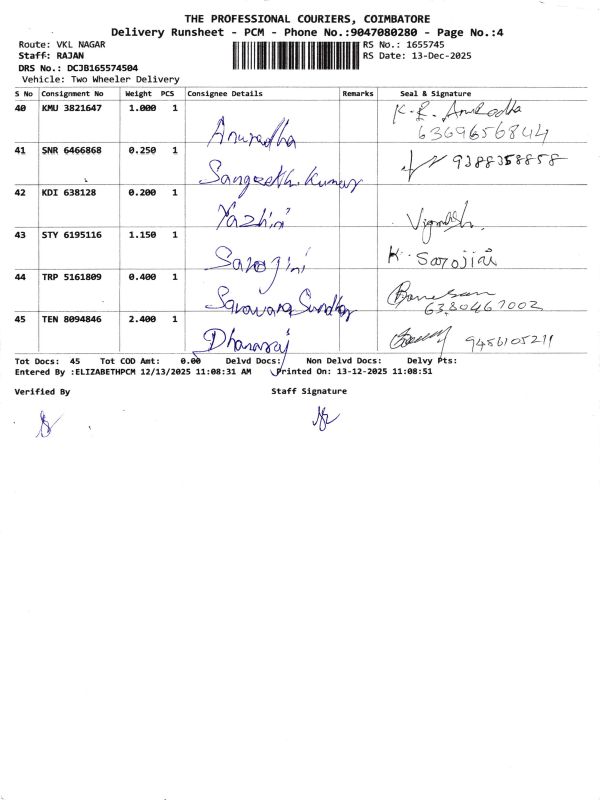 THE PROFESSIONAL COURIERS, COIMBATORE
Delivery Runsheet - PCM - Phone No.:9047080280 - Page No.:4
Route: VKL NAGAR RS No.: 1655745
Staff: RAJAN RS Date: 13-Dec-2025
DRS No.: DCJB165574504
Vehicle: Two Wheeler Delivery
S No Consignment No Weight PCS Consignee Details Remarks Seal & Signature
40 KMU 3821647 1.000 1 Anuradha K. R. Anuradha
6369656844
41 SNR 6466868 0.250 1 Sangeeth Kumar 9388358858
42 KDI 638128 0.200 1 Yazhini Vignesh.
43 STY 6195116 1.150 1 Sarojini K. Sarojini
44 TRP 5161809 0.400 1 Saravana Sundhar
6380467002
45 TEN 8094846 2.400 1 Dhanaraj 9456105211
Tot Docs: 45 Tot COD Amt: 0.00 Delvd Docs: Non Delvd Docs: Delvy Pts:
Entered By :ELIZABETHPCM 12/13/2025 11:08:31 AM Printed On: 13-12-2025 11:08:51
Verified By Staff Signature